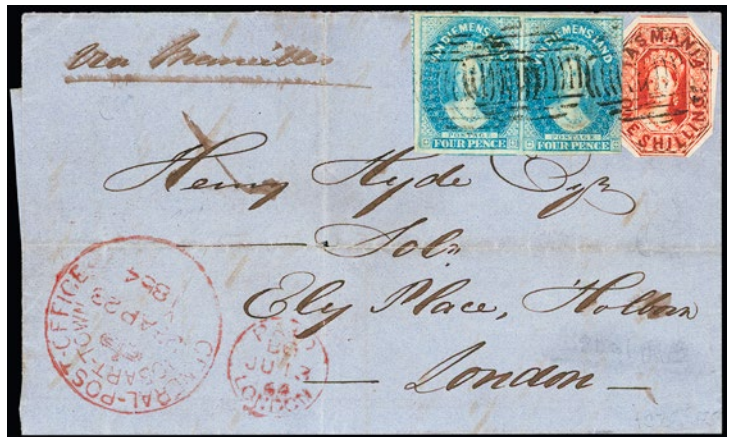 Via Marseilles
VAN DIEMENS LAND
POSTAGE
FOUR PENCE
VAN DIEMENS LAND
POSTAGE
FOUR PENCE
TASMANIA
ONE SHILLING
Henry Hyde Esqr
Solr
Ely Place, Holborn
London
GENERAL-POST-OFFICE
HOBART-TOWN
AP 23
1864
PAID
LONDON